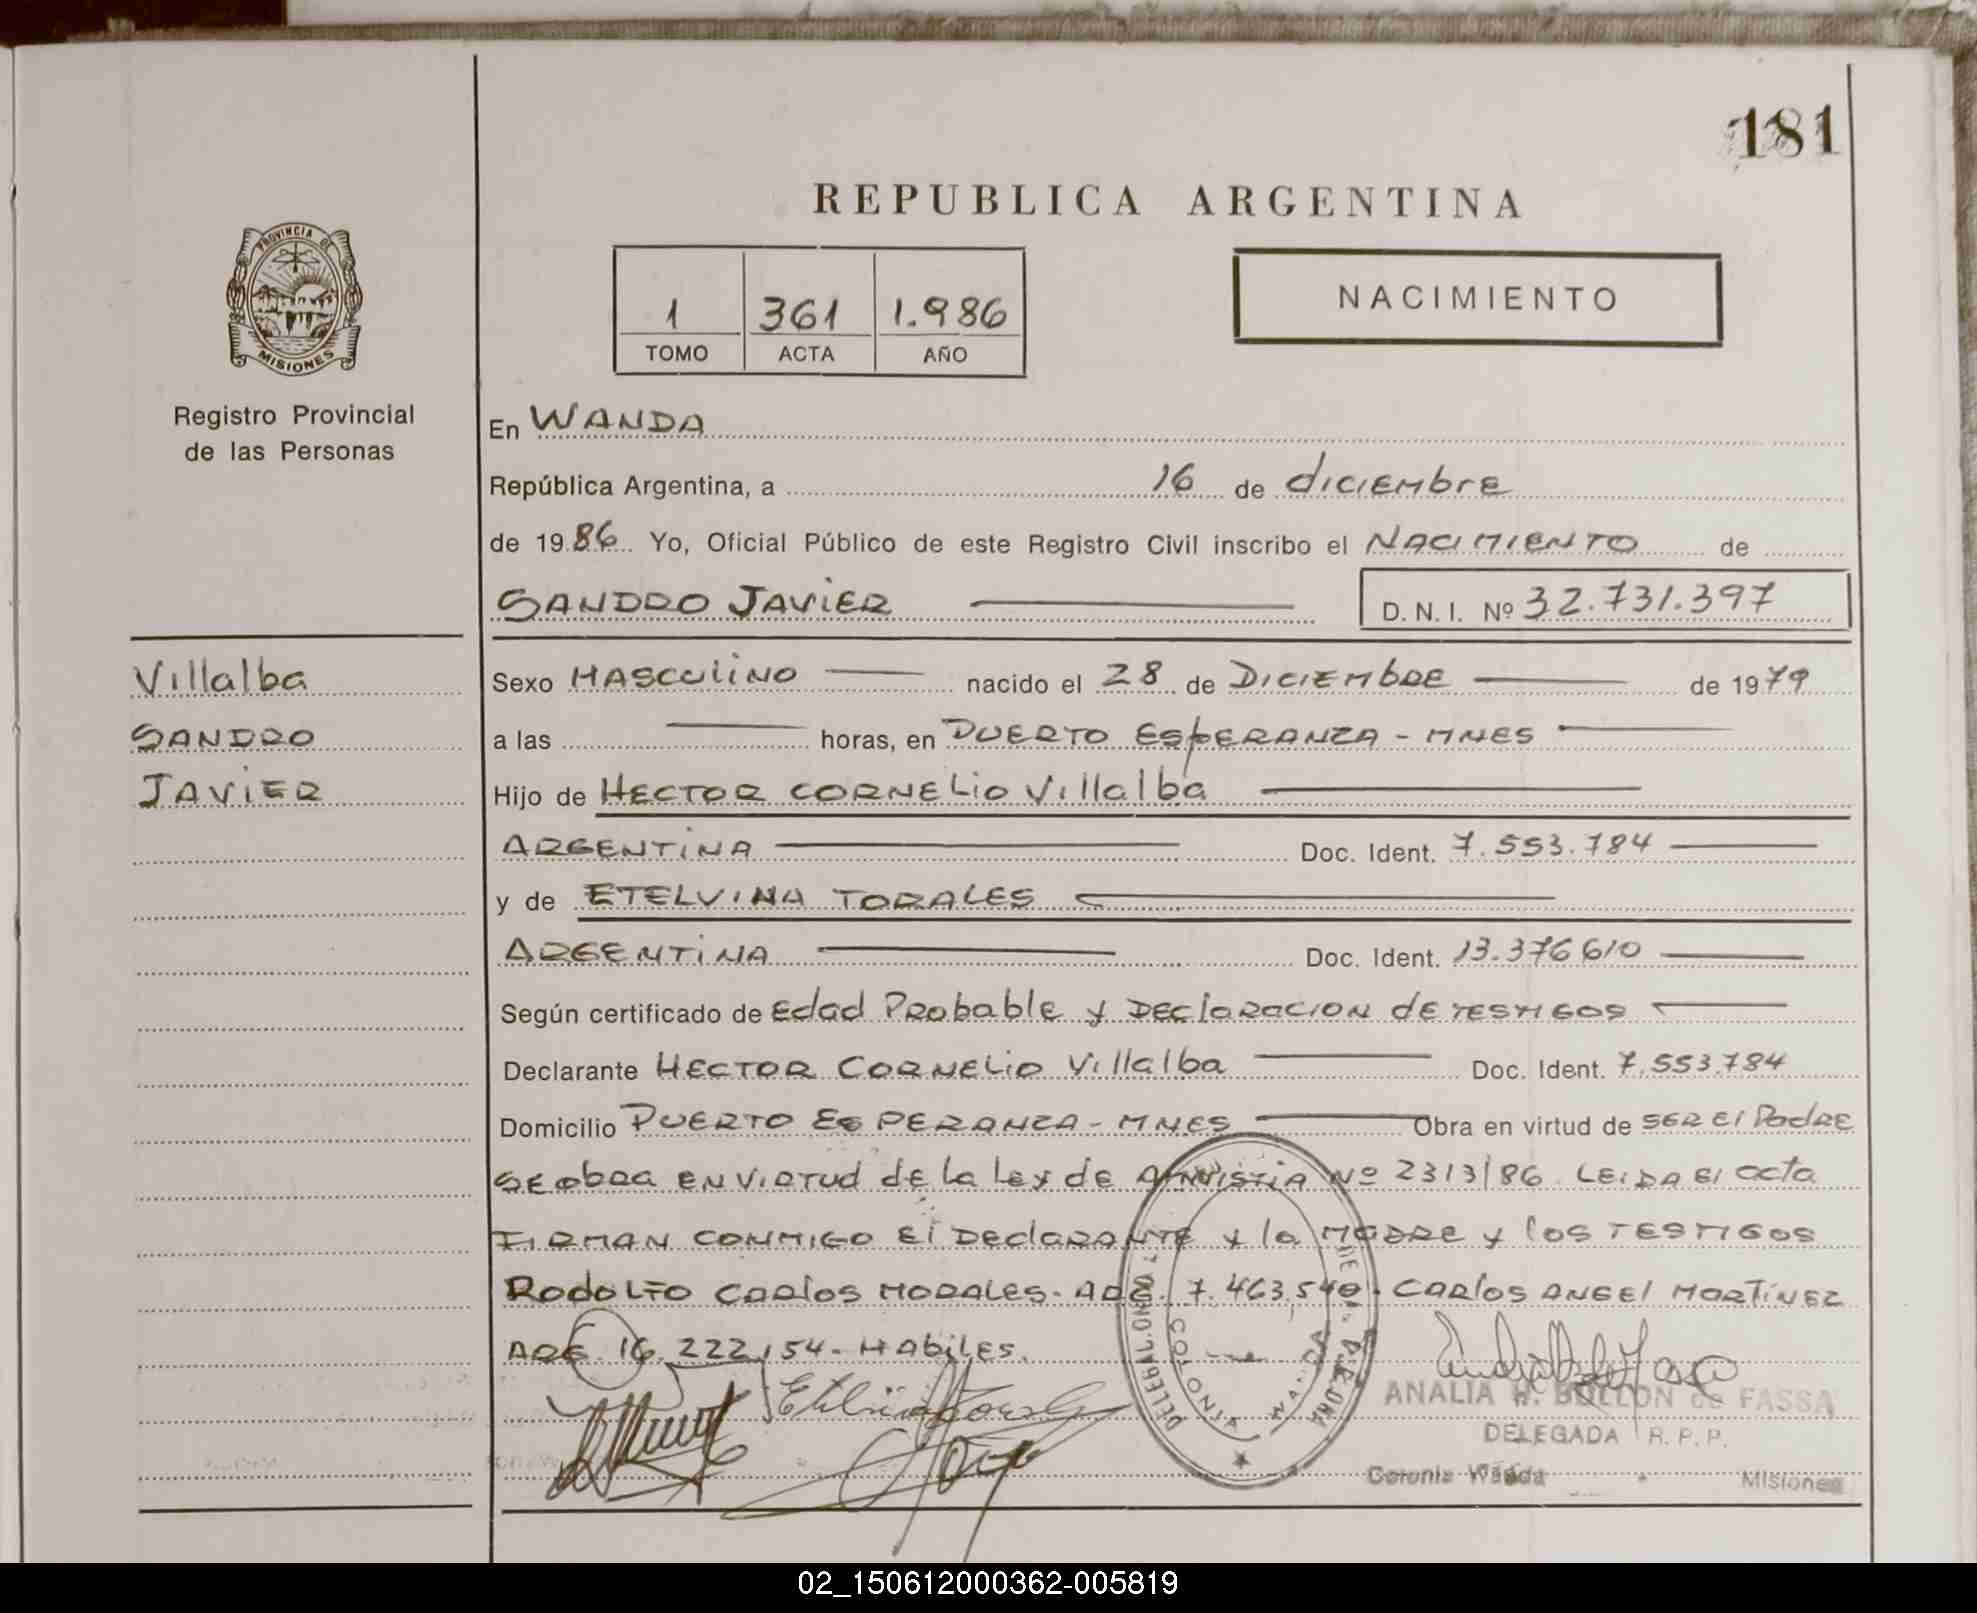 181
REPUBLICA ARGENTINA
PROVINCIA DE
MISIONES
Registro Provincial
de las Personas
1 361 1.986
TOMO ACTA AÑO
NACIMIENTO
En WANDA
República Argentina, a 16 de diciembre
de 1986 Yo, Oficial Público de este Registro Civil inscribo el NACIMIENTO de
SANDRO JAVIER D. N. I. Nº 32.731.397
Villalba
SANDRO
JAVIER
Sexo MASCULINO nacido el 28 de DICIEMBRE de 1979
a las horas, en PUERTO ESPERANZA - MNES
Hijo de HECTOR CORNELIO Villalba
ARGENTINA Doc. Ident. 7.553.784
y de ETELVINA TORALES
ARGENTINA Doc. Ident. 13.376610
Según certificado de Edad Probable y DEClaRACION dE TESTIGOS
Declarante HECTOR CORNELIO Villalba Doc. Ident. 7.553.784
Domicilio PUERTO ESPERANZA - MNES Obra en virtud de SER El PadRE
SE obRa EN ViRTud dE La LEy dE AMNISTIA Nº 2313/86 LEIDA El acta
FIRMAN CONMIGO El DEClaRANTE y la MADRE y los TESTIGOS
RodoLFO CARlos MORALES. ARG. 7.463.540. CARlos ANGEl MARTINEZ
ARG. 16.222,154- HAbiLES.
ANALIA H. BULLON de FASSA
DELEGADA R. P. P.
Colonia Wanda Misiones
02_150612000362-005819